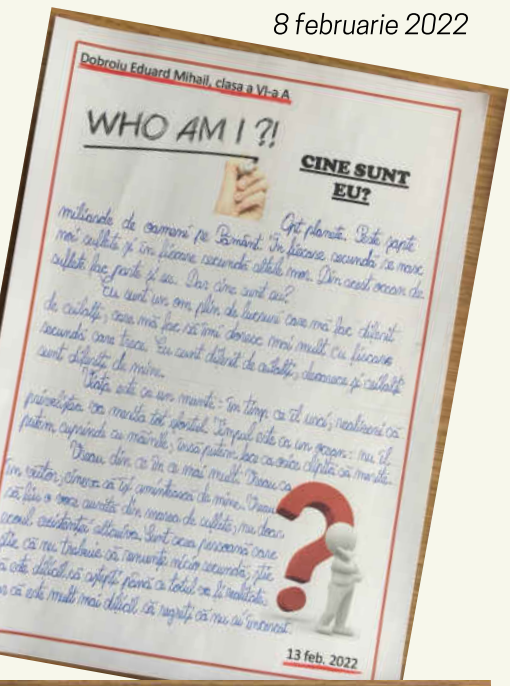 8 februarie 2022
Dobroiu Eduard Mihail, clasa a VI-a A
WHO AM I ?!
CINE SUNT
EU?
Opt planete. Peste șapte
miliarde de oameni pe Pământ. În fiecare secundă se nasc
noi suflete și în fiecare secundă altele mor. Din acest ocean de
suflete fac parte și eu. Dar cine sunt eu?
Eu sunt un om plin de lucruri care mă fac diferit
de ceilalți, care mă fac să îmi doresc mai mult cu fiecare
secundă care trece. Eu sunt diferit de ceilalți, deoarece și ceilalți
sunt diferiți de mine.
Viața este ca un munte: în timp ce îl urci, realizezi că
priveliștea va merita tot efortul. Timpul este ca un ocean: nu îl
putem cuprinde cu mâinile, însă putem face ca orice clipită să merite.
Visau din ce în ce mai mult. Visau ca
în viitor, cineva să își amintească de mine. Visau
să fiu o voce auzită din marea de suflete, nu doar
ecoul existenței altcuiva. Sunt acea persoană care
știe că nu trebuie să renunțe nicio secundă, știe
că este dificil să aștepți până ce totul va fi realitate,
dar că este mult mai dificil să regreți că nu ai încercat.
13 feb. 2022